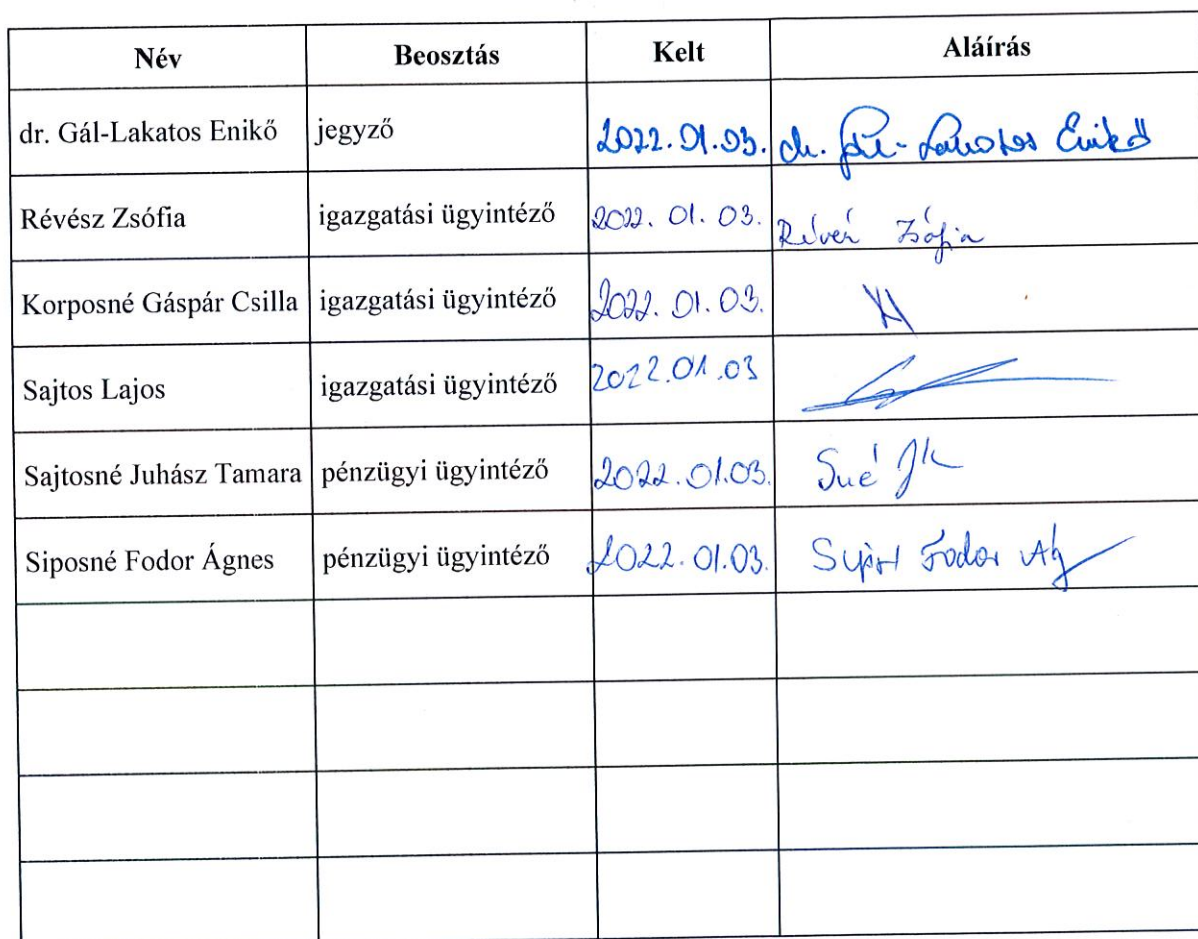 Név Beosztás Kelt Aláírás
dr. Gál-Lakatos Enikő jegyző 2022.01.03. dr. Gál-Lakatos Enikő
Révész Zsófia igazgatási ügyintéző 2022. 01. 03. Révész Zsófia
Korposné Gáspár Csilla igazgatási ügyintéző 2022. 01. 03.
Sajtos Lajos igazgatási ügyintéző 2022.01.03
Sajtosné Juhász Tamara pénzügyi ügyintéző 2022.01.03.
Siposné Fodor Ágnes pénzügyi ügyintéző 2022.01.03. Fodor